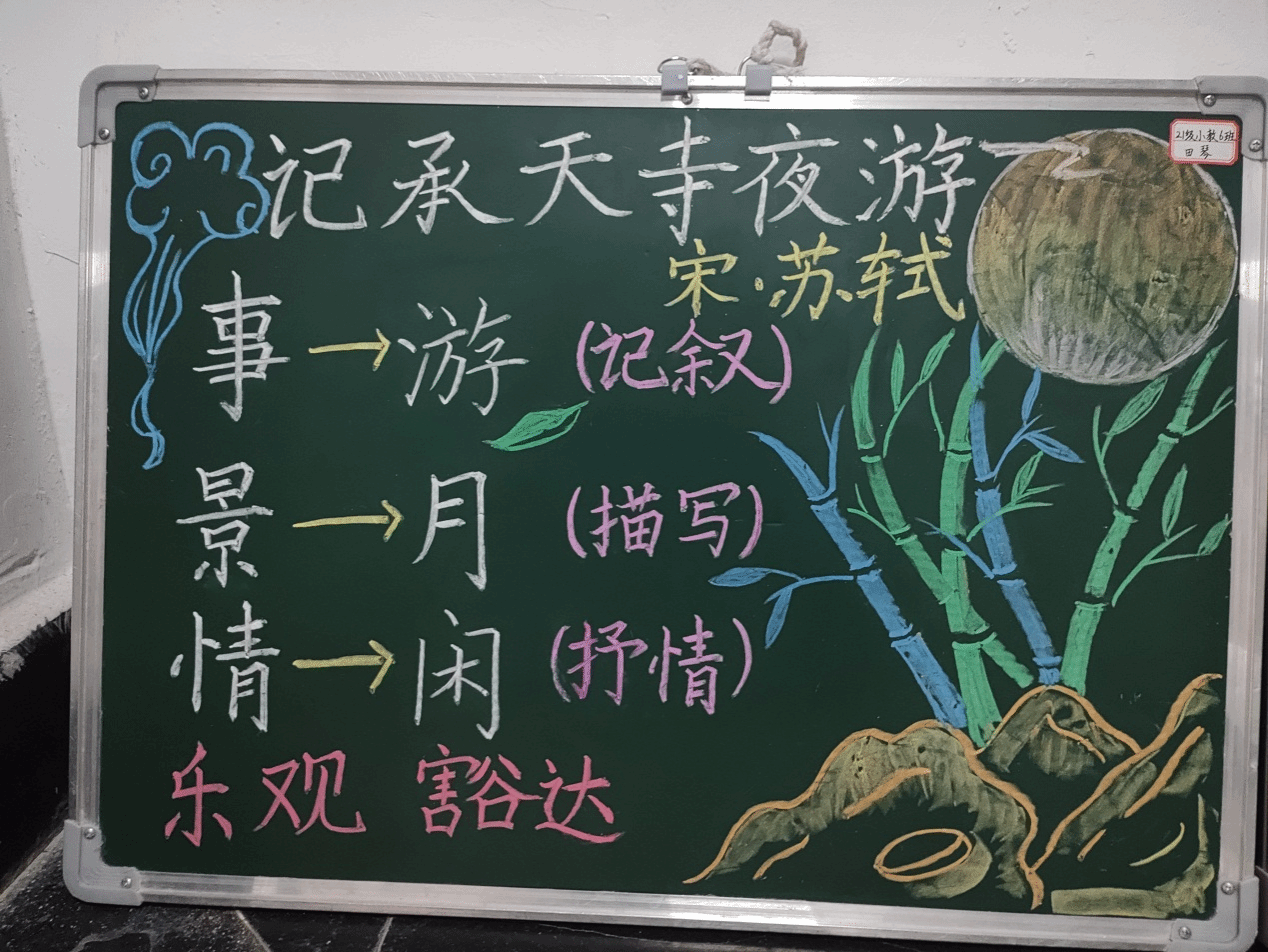 记承天寺夜游
21级小教6班
田琴
宋·苏轼
事→游（记叙）
景→月（描写）
情→闲（抒情）
乐观 豁达